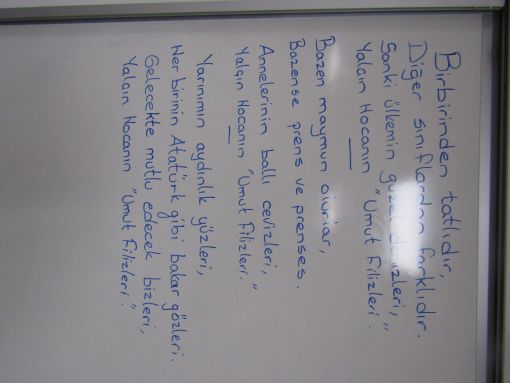 Birbirinden tatlıdır,
Diğer sınıflardan farklıdır.
Sanki ülkemin güzel denizleri,
Yalçın Hocanın "Umut Filizleri."
Bazen maymun olurlar,
Bazense prens ve prenses.
Annelerinin ballı cevizleri,
Yalçın Hocanın "Umut Filizleri."
Yarınımın aydınlık yüzleri,
Her birinin Atatürk gibi bakar gözleri.
Gelecekte mutlu edecek bizleri,
Yalçın Hocanın "Umut Filizleri."